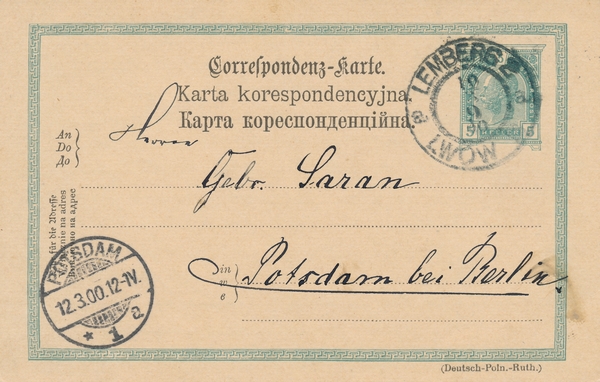 Correspondenz-Karte.
Karta korespondencyjna
Карта кореспонденцiйна
An
Do
До
Herren
Gebr. Saran
in
w
в
Potsdam bei Berlin.
für die Adresse
na adres
на адрес
LEMBERG 2
LWOW
a
5 5
POTSDAM
12.3.00.12-1V.
* 1 a
(Deutsch-Poln.-Ruth.)